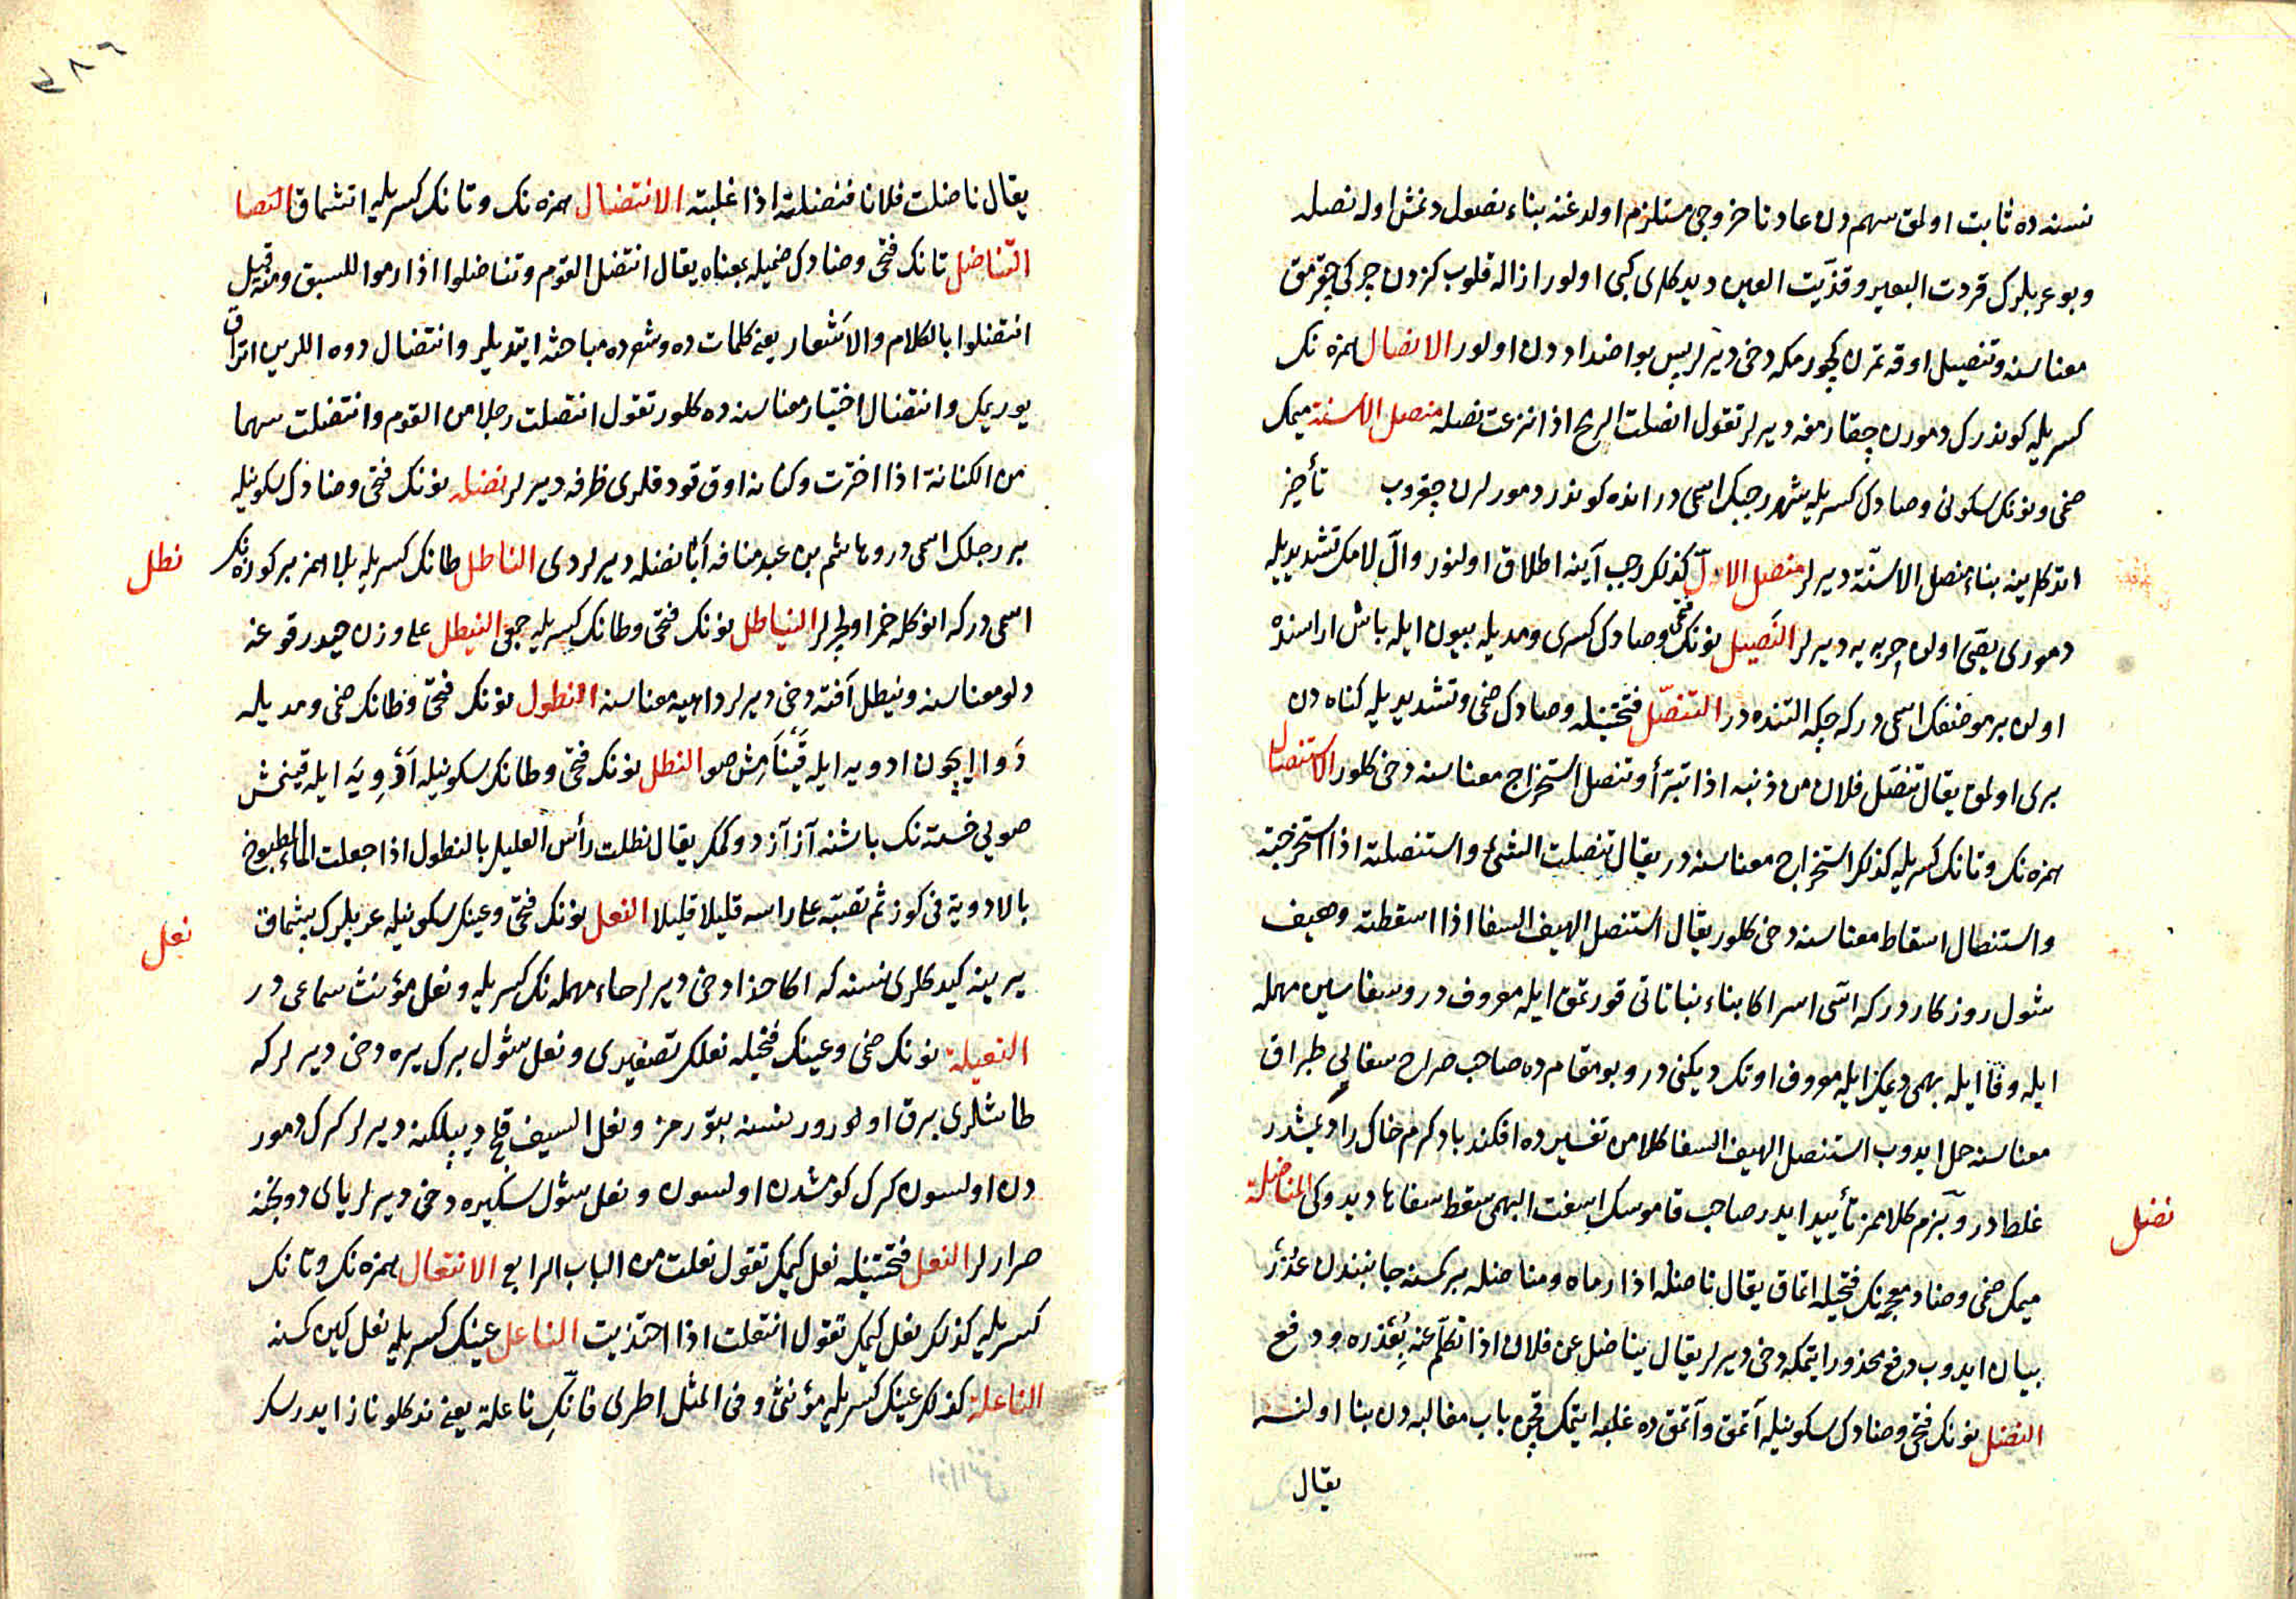 نسنه ده ثابت اولمق سهم دن عادتا خروجی مستلزم اولدغنه بناء نصول دنمش اوله نصله
وبو عربلرك قردت البعير وقذّيت العين ديدكلری كبی اولور ازاله قلوب كزدن چركی چقرمق
معناسنه وتنصيل اوقه تمرن كچورمكه دخی ديرلر پس بو اضداددن اولور الانصال همزه نك
كسريله كوندرك دمورن چقارمغه ديرلر تقول انصلت الرمح اذا نزعت نصله منصل الاسنة ميمك
ضمی ونونك سكونی وصادك كسريله شهر رجبك اسمی در انده كوندر دمورلرن چقروب تأخير
اتدكلرينه بناء منصل الاسنّة ديرلر منصل الالّ كذلك رجب آينه اطلاق اولنور والّ لامك تشديديله
دموری يصّی اولن حربه يه ديرلر النَصيل نونك فتحی وصادك كسری ومديله بيون ايله باش اراسنده
اولن بر موضعك اسمی در كه چكه التنده در التنصّل فتحتينله وصادك ضمی وتشديديله كناه دن
بری اولمق يقال تنصّل فلان من ذنبه اذا تبرّأ وتنصل استخراج معناسنه دخی كلور الاستنصال
همزه نك وتانك كسريله كذلك استخراج معناسنه در يقال تنصلت الشئ واستنصلته اذا استخرجته
واستنصال اسقاط معناسنه دخی كلور يقال استنصل الهيف السفا اذا اسقطته وهيف
شول روزكاردر كه اسّی اسر اكا بناء نباتاتی قورتمق ايله معروف در وسفا سين مهمله
ايله وفا ايله بهمی ديمكز ايله معروف اوتك ديكنی در وبو مقام ده صاحب صراح سفا لی طبراق
معناسنه حمل ايدوب استنصل الهيف السفا كلامن تفسيرده افكند باد كرم خاك را ديمشدر
غلط در وبزم كلاممز تأييد ايدر صاحب قاموسك اسفت البهمی سقط سفاها ديدوكی المناضلة
ميمك ضمی وضاد معجمه نك فتحيله اتماق يقال ناضله اذا رماه ومناضله بر كمسنه جانبندن عُذر
بيان ايدوب دفع محذور ايتمكه دخی ديرلر يقال يناضل عن فلان اذا تكلّم عنه بِعُذره ودفع
النضل نونك فتحی وضادك سكونيله آتمق وآتمق ده غلبه ايتمك قچن باب مغالبه دن بنا اولنسه
يقال
نضل
٣٨٦
يقال ناضلت فلانا فنضلته اذا غلبته الانتضال همزه نك وتانك كسريله اتشماق النضا
التناضل تانك فتحی وضادك ضميله بمعناه يقال انتضل القوم وتناضلوا اذا رموا للسبق ومنه قيل
انتضلوا بالكلام والاَشعار يعنی كلمات ده وشعرده مباحثه ايتديلر وانتضال دوه اللرين اتراق
يوريمك وانتضال اختيار معناسنه ده كلور تقول انتضلت رجلا من القوم وانتضلت سهما
من الكنانة اذا اخترت وكنانه اوق قودقلری ظرفه ديرلر نضله نونك فتحی وضادك سكونيله
بر رجلك اسمی در وهاشم بن عبد منافه اَبا نضله ديرلردی الناطل طانك كسريله بلا همز بر كوزه نك
اسمی در كه انوكله خمر اولچرلر النياطل نونك فتحی وطانك كسريله جمعی النيطل علی وزن حيدر قوغه
دلو معناسنه ونيطل آفته دخی ديرلر داهيه معناسنه النطول نونك فتحی وطانك ضمی ومديله
دَوا ايچون ادويه ايله قَينَاَمِش صو النطل نونك فتحی وطانك سكونيله اَدْوِيَه ايله قينمش
صويی خسته نك باشنه آز آز دوكمك يقال نطلت رأس العليل بالنطول اذا جعلت الماء المطبوخ
بالادوية فی كوز ثم تصبّه علی راسه قليلا قليلا النعل نونك فتحی وعينك سكونيله عربلرك پشماق
يرينه كيدكلری نسنه كه اكا حذا دخی ديرلر حاء مهمله نك كسريله ونعل مؤنث سماعی در
النعيلة نونك ضمی وعينك فتحيله نعلك تصغيری ونعل شول برك يره دخی ديرلر كه
طاشلری برق اولور ور نسنه بتورمز ونعل السيف قلج ديبلكنه ديرلر كرك دمور
دن اولسون كرك كومشدن اولسون ونعل شول سكيره دخی ديرلر يای دوبنجنه
صرارلر النعل فتحتينله نعل كيمك تقول نعلت من الباب الرابع الانتعال همزه نك وتانك
كسريله كذلك نعل كيمك تقول انتعلت اذا احتذيت الناعل عينك كسريله نعل كين كمسنه
الناعلة كذلك عينك كسريله مؤنثی وفی المثل اطری فانّكِ ناعلة يعنی
نطل
نعل